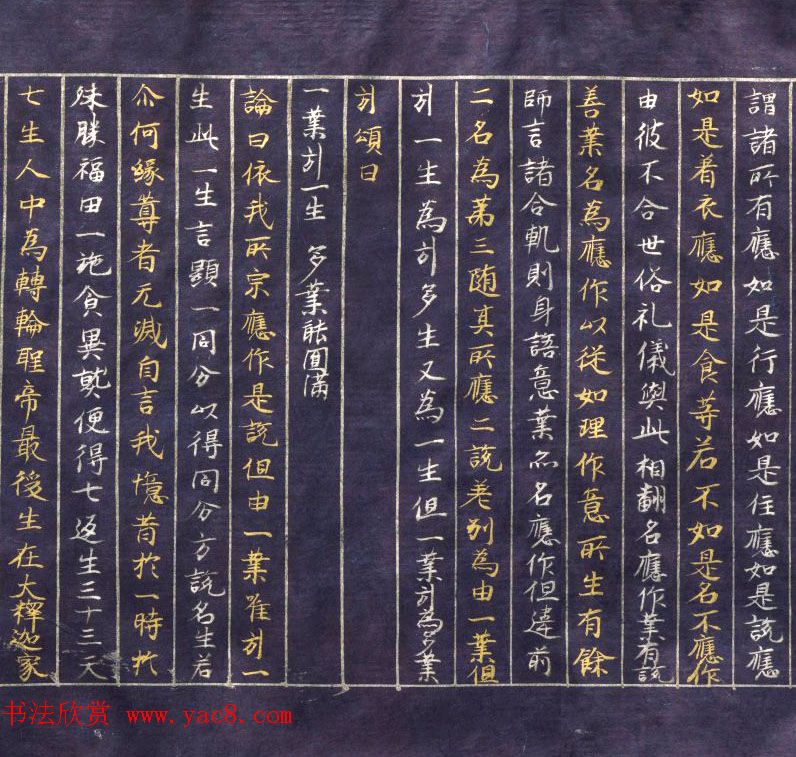 謂諸所有應如是行應如是住應如是説應
如是着衣應如是食等若不如是名不應作
由彼不合世俗礼儀與此相翻名應作業有説
善業名為應作以從如理作意所生有餘
師言諸合軌則身語意業亦名應作但違前
二名為第三随其所應二説差別為由一業但
引一生為引多生又為一生但一業引為多業
引頌曰
一業引一生 多業能圓滿
論曰依我所宗應作是説但由一業唯引一
生此一生言顯一同分以得同分方説名生若
尒何緣尊者无滅自言我憶昔於一時於
殊勝福田一施食異熟便得七返生三十三天
七生人中為轉輪聖帝最後生在大釋迦家
书法欣赏 www.yac8.com